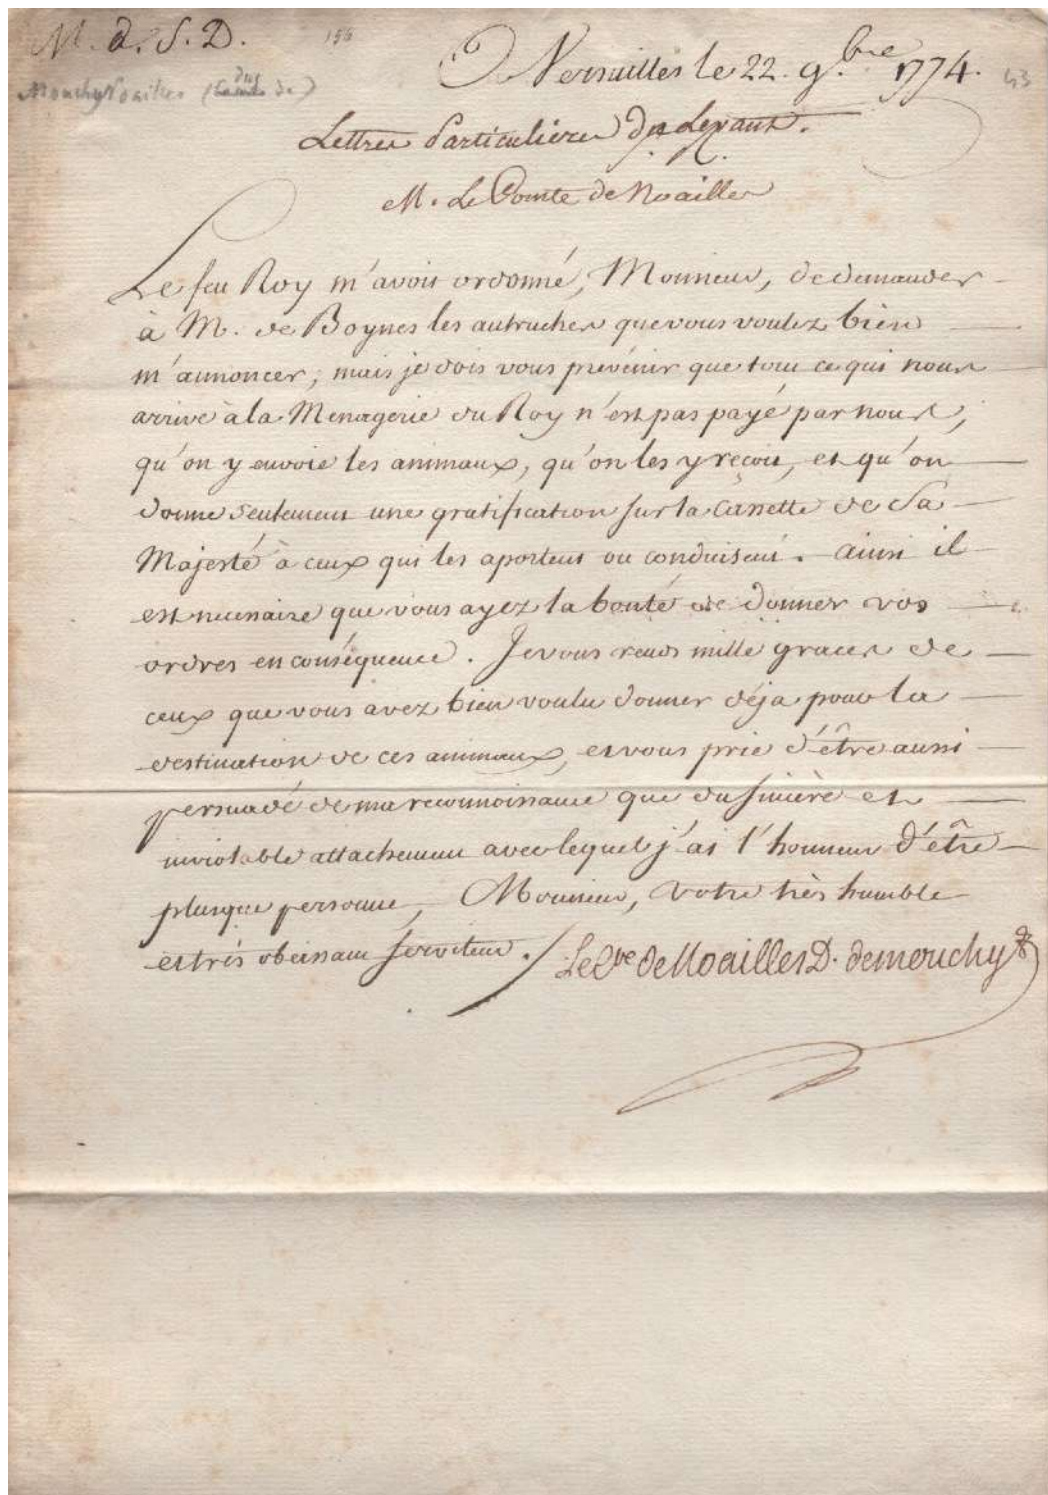 M. d. S. D.
156
Versailles le 22. 9.bre 1774.
43
Mouchy Noailles (duc de)
Lettres Particulieres du Levant.
M. Le Comte de Noailles
Le feu Roy m'avoit ordonné, Monsieur, de demander
à M. de Boynes les autruches que vous voulez bien
m'annoncer; mais je dois vous prévenir que tout ce qui nous
arrive à la Menagerie du Roy n'est pas payé par nous,
qu'on y envoie les animaux, qu'on les y reçoit, et qu'on
donne seulement une gratification sur la Cassette de Sa
Majesté à ceux qui les aportent ou conduisent. ainsi il
est necessaire que vous ayez la bonté de donner vos
ordres en conséquence. Je vous rends mille graces de
ceux que vous avez bien voulu donner déja pour la
destination de ces animaux, et vous prie d'être aussi
persuadé de ma reconnoissance que du sincère et
inviolable attachement avec lequel j'ai l'honneur d'être
plus que personne, Monsieur, Votre très humble
et très obeissant serviteur.
Le Cte de Noailles D. de mouchy